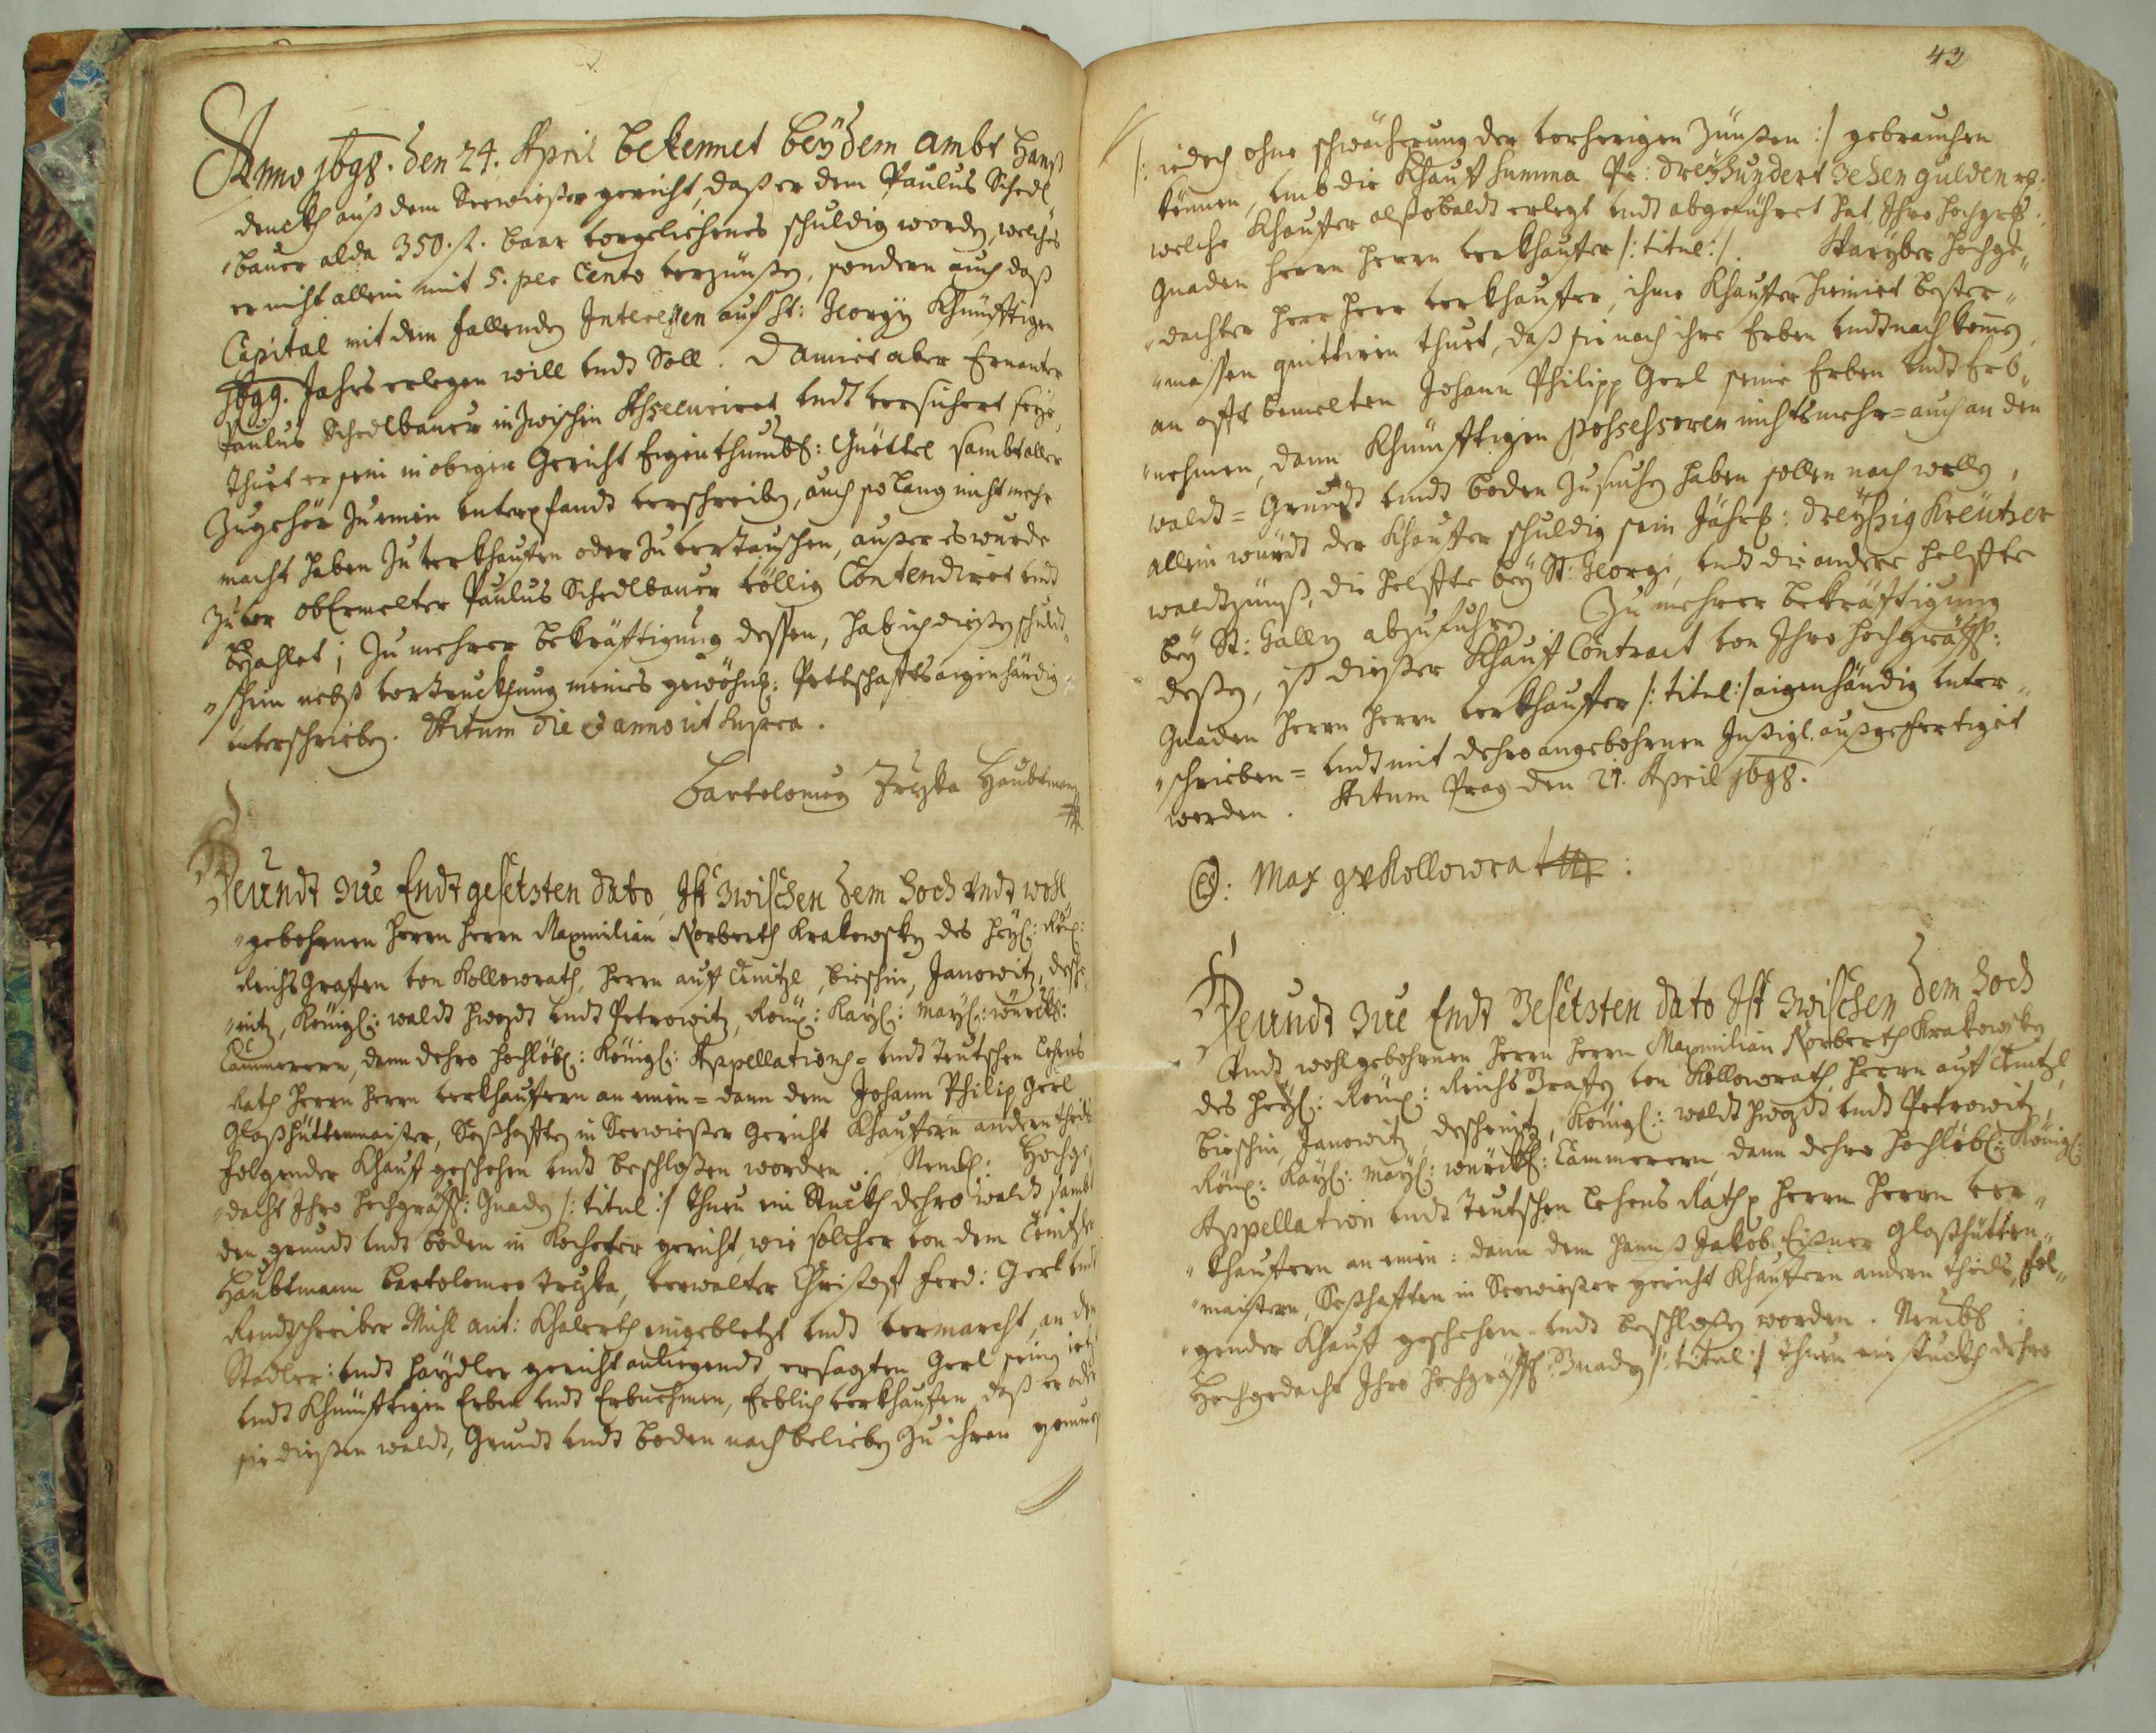 Anno 1698. den 24. April bekennet beÿ dem Ambt Hanß
denckh auß dem Seewießer gericht, daß er dem Paulus Schedl
bauer alda 350. f. baar vorgelichenes schuldig worden, welches
er nicht allein mit 5. per Cento verzünßen, sondern auch daß
Capital mit dem fallenden Interessen auf St: Georgÿ Khünfftigen
1699. Jahrs erlegen will undt Soll. Damiet aber Ernanter
Paulus Schedlbauer inzwischen Assecuriret undt versichert seÿe,
thuet er sein in obigen Gericht Eigenthumbl: Guettel sambt aller
Zugehör zu einen unterpfandt verschreiben, auch so lang nicht mehr
macht haben zu verkhauffen oder zu vertauschen, außer es wurde
zuvor obErmelter Paulus Schedlbauer völlig Contendiret undt
bezahlet; Zu mehrer bekräfftigung dessen, hab ich dießen schuldt
"schein nebst vortruckhung meines gewöhnl: Pettschaffts aigenhändig
unterschrieben. Actum die et anno ut supra.
Bartolomeÿ Zrÿka Haubtman
Heundt zue Endt gesetzten dato, Ist zwischen dem Hoch undt wohl
"gebohrnen Herrn Herrn Maxmilian Norberth Krakowskÿ des Heÿl: Röm:
Reichs Graffen von Kollowrath, Herrn auf Teinitzl, bieschin, Janowitz, desche
"nitz, Königl: waldt hwozdt undt Petrowitz, Röm: Kaÿl: Maÿl: würckl:
Cammerern, dann dehro Hochlöbl: Königl: Appellations= undt Teutschen Lehens
Rath Herrn Herrn verkhauffern an einen= dann dem Johann Philip Gerl
Glaßhüttenmaister, Seßhafften in Seewießer Gericht Khauffern andern theils
folgender Khauff geschehen undt beschloßen worden. Nembl: Hochge
"dacht Ihro Hochgräffl: Gnaden /: titul :/ thuen ein Stuckh dehro waldt sambt
den grundt undt boden in Kocheter gericht, wie solcher von dem Teinitzler
Haubtmann Bartolomeo Zrÿka, verwalter Christoff Ferd: Gerl undt
Rendtschreiber Michl Ant: Khalerth eingeblatzt undt vermarcht, an den
Stadler: undt Haÿdler gericht anliegendt, ersagten Gerl seinen ietz
undt Khünfftigen Erben undt Erbnehmen, Erblich verkhauffen, daß er oder
sie dießen waldt, Grundt undt boden nach belieben zu ihren genuß
43
/: iedoch ohne schwächerung der vorherigen Zünßen :/ gebrauchen
können, umb die Khauff summa Pr: dreÿhundert Zehen gulden rh:
welche Khauffer alßobaldt erlegt undt abgeführet hat, Ihro Hochgrfl:
Gnaden Herrn Herrn verkhauffer /: titul :/. Hochge"
"dachter Herr Herr verkhauffer, ihme Khauffer hiemiet bester"
"massen quittiren thuet, daß sie noch ihre Erben undt nachkomen,
an offt bemelten Johann Philipp Gerl seine Erben undt Erb"
"nehmen, dann Khünfftigen possessoren nichts mehr= auch an den
waldt= Grundt undt boden zu suchen haben sollen noch wollen,
allein würdt der Khauffer schuldig sein Jährl: dreÿssig Kreützer
waldtzünß, die helffte beÿ St: Georgi, undt die andere helffte
beÿ St: Gally abzufuhren. Zu mehrer bekräfftigung
deßen, ist dießer Khauff Contract von Ihro Hochgräffl:
Gnaden Herrn Herrn verkhauffer /: titul :/ aigenhändig unter"
"schrieben= undt mit dehro angebohrnen Insigl. außgefertiget
worden. Actum Prag den 21. April 1698.
LS: Max g v Kollowrat :
Heundt zue Endt Gesetzten dato Ist zwischen dem Hoch
Undt wohlgebohrnen Herrn Herrn Maxmilian Norberth Krakowskÿ
des Heÿl: Röm: Reichs Graffen von Kollowrath, Herrn auf Teinitzl,
bieschin, Janowitz, deschenitz, Königl: waldt hwozdt undt Petrowitz,
Röm: Kaÿl: Maÿl: würckl: Cammerern, dann dehro Hochlöbl: Königl:
Appellation undt Teutschen Lehens Rath Herrn Herrn ver"
"khauffern an einen: dann dem Hannß Jakob Eißner Glaßhütten"
"maistern, Seßhafften in Seewießer gericht Khauffern andern theils, fol"
"gender Khauff geschehen undt beschloßen worden. Nembl:
Hochgedacht Ihro Hochgräffl: Gnaden /: titul :/ thuen ein stuckh dehro